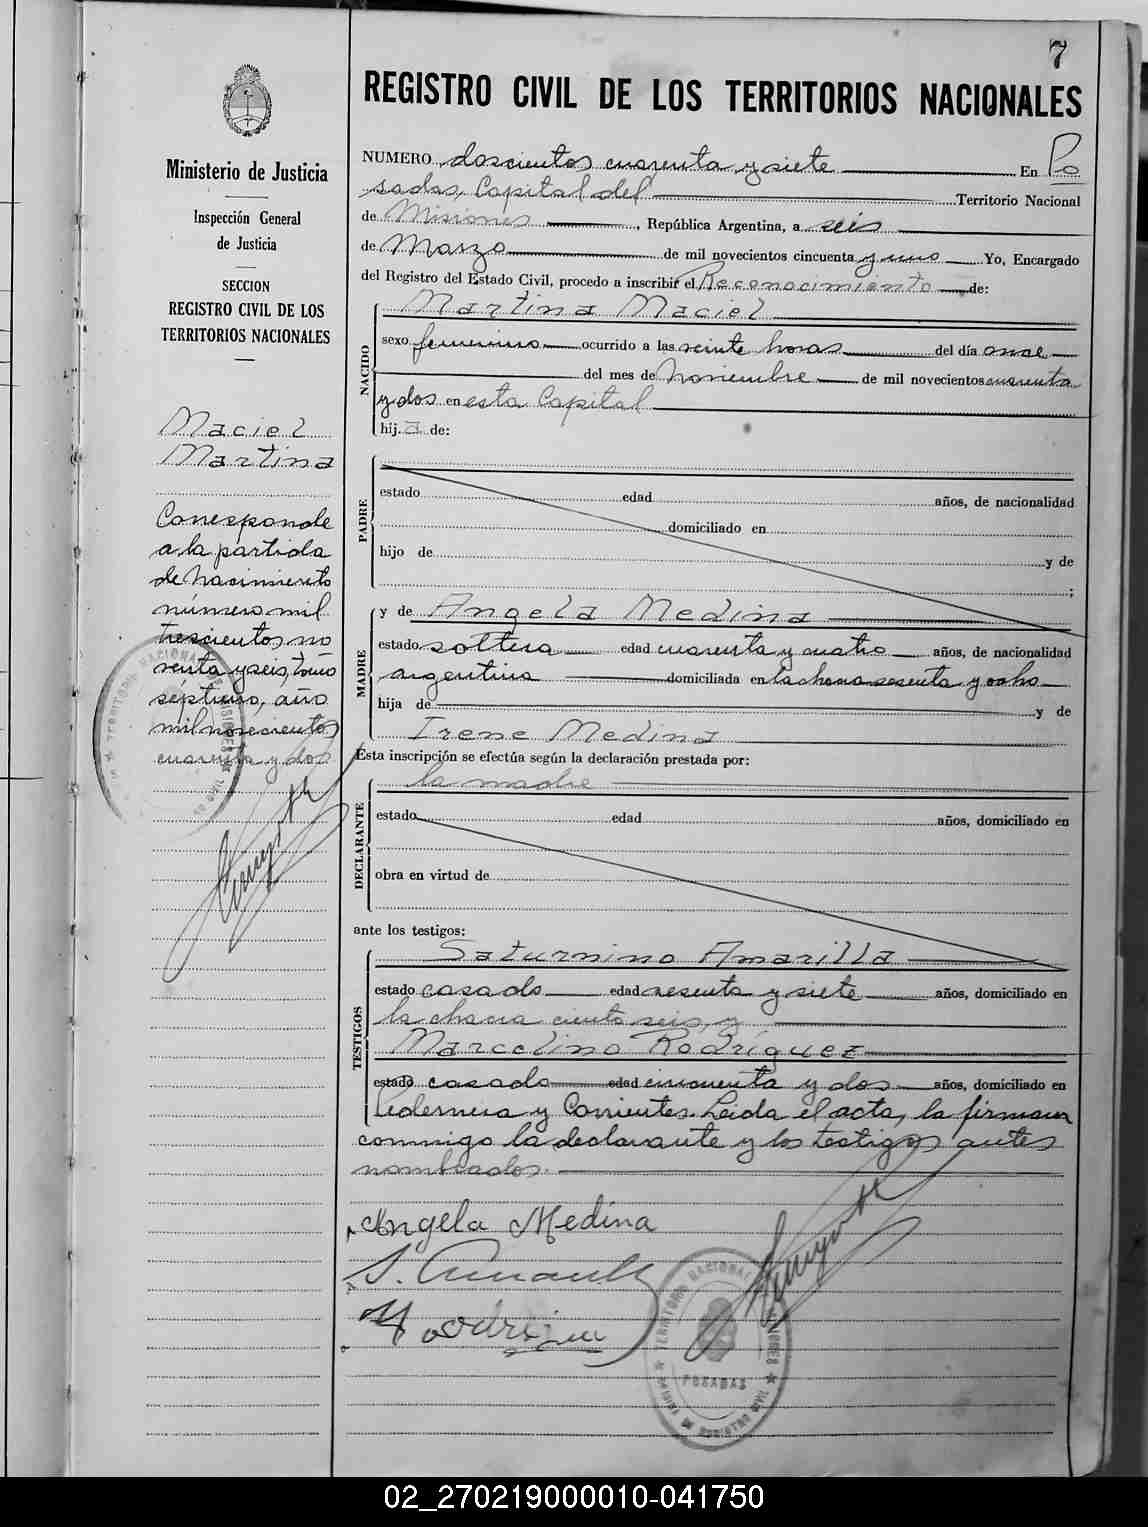 7
REGISTRO CIVIL DE LOS TERRITORIOS NACIONALES
Ministerio de Justicia
Inspección General
de Justicia
SECCION
REGISTRO CIVIL DE LOS
TERRITORIOS NACIONALES
Maciel
Martina
Corresponde
a la partida
de nacimiento
número mil
trescientos no
venta y seis, tomo
septimo, año
mil novecientos
cuarenta y dos
NUMERO doscientos cuarenta y siete En Po
sadas, Capital del Territorio Nacional
de Misiones, República Argentina, a seis
de Marzo de mil novecientos cincuenta y uno Yo, Encargado
del Registro del Estado Civil, procedo a inscribir el Reconocimiento de:
NACIDO
Martina Maciel
sexo femenino ocurrido a las veinte horas del día once
del mes de Noviembre de mil novecientos cuarenta
y dos en esta Capital
hij.a de:
PADRE
estado edad años, de nacionalidad
domiciliado en
hijo de y de
;
MADRE
y de Angela Medina
estado soltera edad cuarenta y cuatro años, de nacionalidad
argentina domiciliada en la chacra sesenta y ocho
hija de y de
Irene Medina
Esta inscripción se efectúa según la declaración prestada por:
la madre
DECLARANTE
estado edad años, domiciliado en
obra en virtud de
ante los testigos:
TESTIGOS
Saturnino Amarilla
estado casado edad sesenta y siete años, domiciliado en
la chacra ciento seis, y
Marcelino Rodríguez
estado casado edad cincuenta y dos años, domiciliado en
Pedernera y Corrientes. Leida el acta, la firman
conmigo la declarante y los testigos antes
nombrados.
Angela Medina
TERRITORIO NACIONAL
MISIONES
POSADAS
02_270219000010-041750